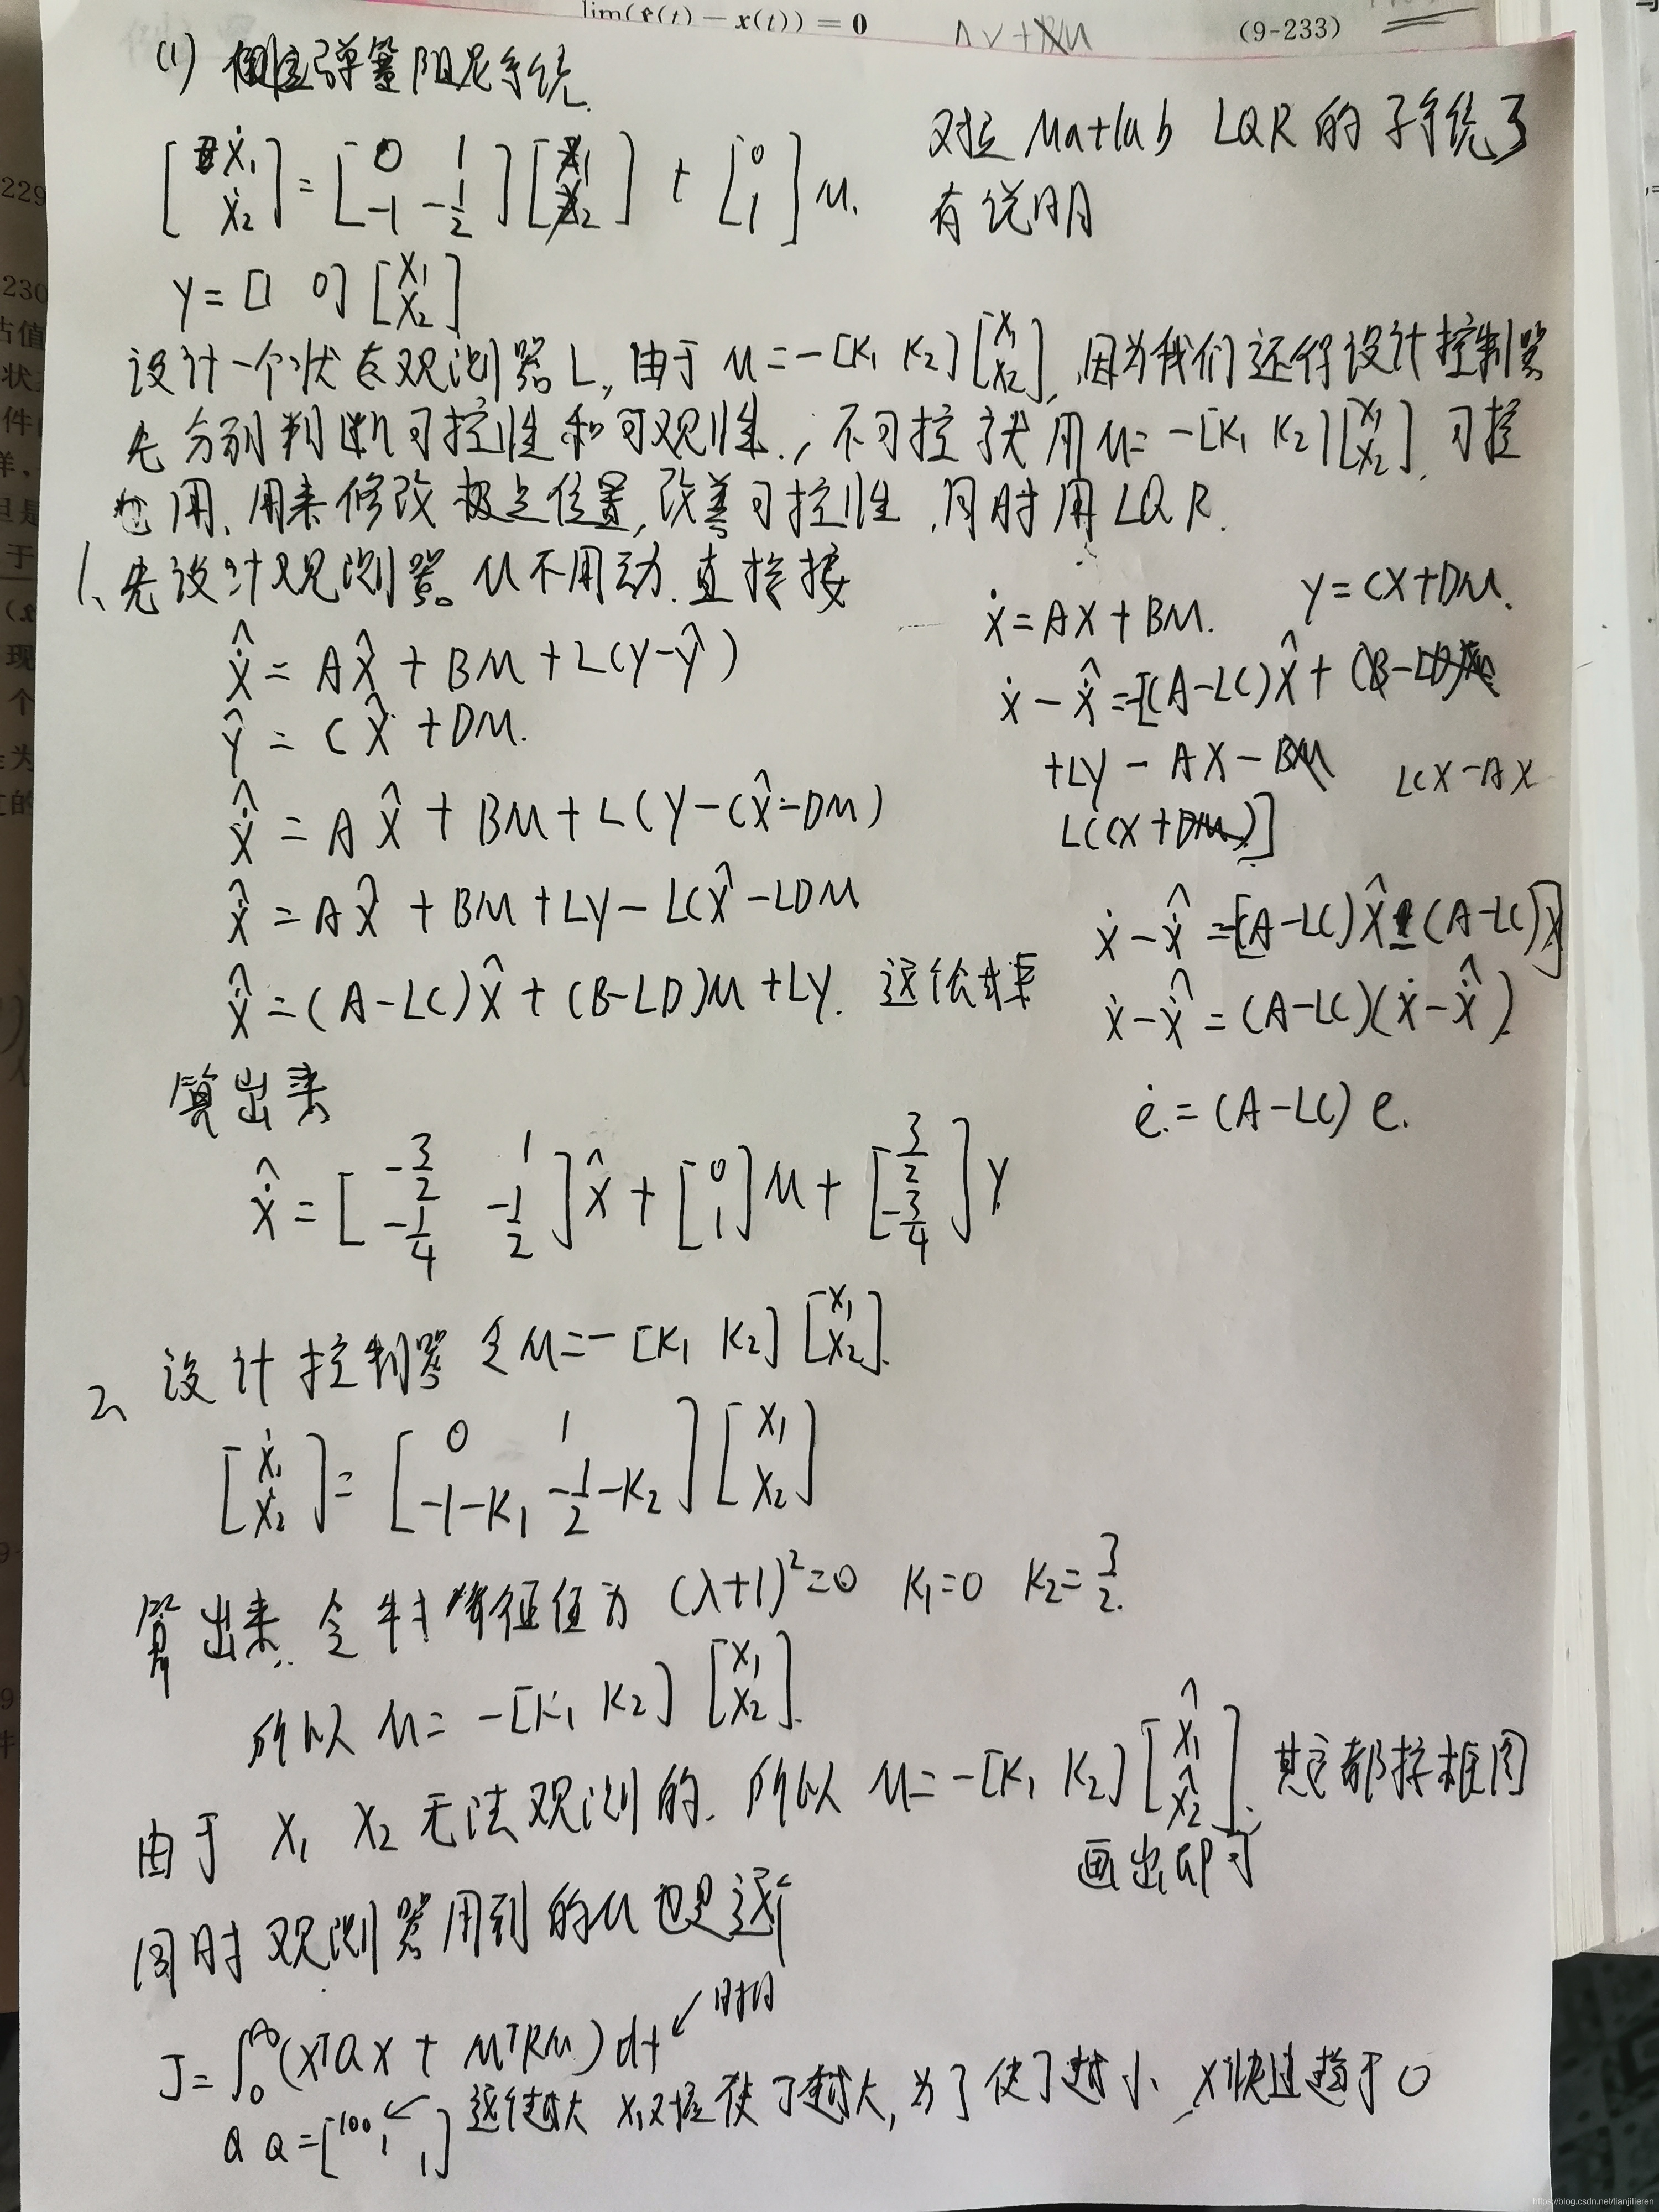 lim(x̂(t) − x(t)) = 0 (9-233)
(1) 倒立弹簧阻尼系统.
[ẋ₁ ẋ₂] = [0 1; -1 -1/2][x₁ x₂] + [0 1]u.
对应 Matlab LQR 的子系统了
有说明
y = [1 0][x₁ x₂]
设计一个状态观测器L, 由于 u=-[K₁ K₂][x₁ x₂], 因为我们还得设计控制器
先分别判断可控性和可观性., 不可控就用u=-[K₁ K₂][x₁ x₂], 可控
也用, 用来修改极点位置, 改善可控性, 同时用LQR.
1、先设计观测器。u不用动. 直接接
x̂̇ = Ax̂ + Bu + L(y-ŷ)
ŷ = Cx̂ + Du.
x̂̇ = Ax̂ + Bu + L(y-Cx̂-Du)
x̂̇ = Ax̂ + Bu + Ly - LCx̂ - LDu
x̂̇ = (A-LC)x̂ + (B-LD)u + Ly.
ẋ = Ax + Bu. y = Cx + Du.
ẋ - x̂̇ = -[(A-LC)x̂ + (B-LD)u
+Ly - Ax - Bu LCx-Ax
L(Cx+Du)]
ẋ - x̂̇ = -[(A-LC)x̂ - (A-LC)x]
ẋ - x̂̇ = (A-LC)(ẋ - x̂̇).
ė = (A-LC) e.
算出来
x̂̇ = [-3/2 1; -1/4 -1/2]x̂ + [0 1]u + [3/2 -3/4]y
2、设计控制器 令u=-[K₁ K₂][x₁ x₂].
[ẋ₁ ẋ₂] = [0 1; -1-K₁ -1/2-K₂][x₁ x₂]
算出来. 令 特征值为 (λ+1)²=0 K₁=0 K₂=3/2.
所以 u= -[K₁ K₂][x₁ x₂].
由于 x₁ x₂ 无法观测的. 所以 u=-[K₁ K₂][x̂₁ x̂₂]. 其它都按框图
画出即可
同时观测器用到的u也是这个
J = ∫₀^∞ (xᵀQx + uᵀRu) dt ← 时间
Q Q=[100, 1] ← 这个越大 使J越大, 为了使J越小、x快速趋于0
https://blog.csdn.net/tianjilieren